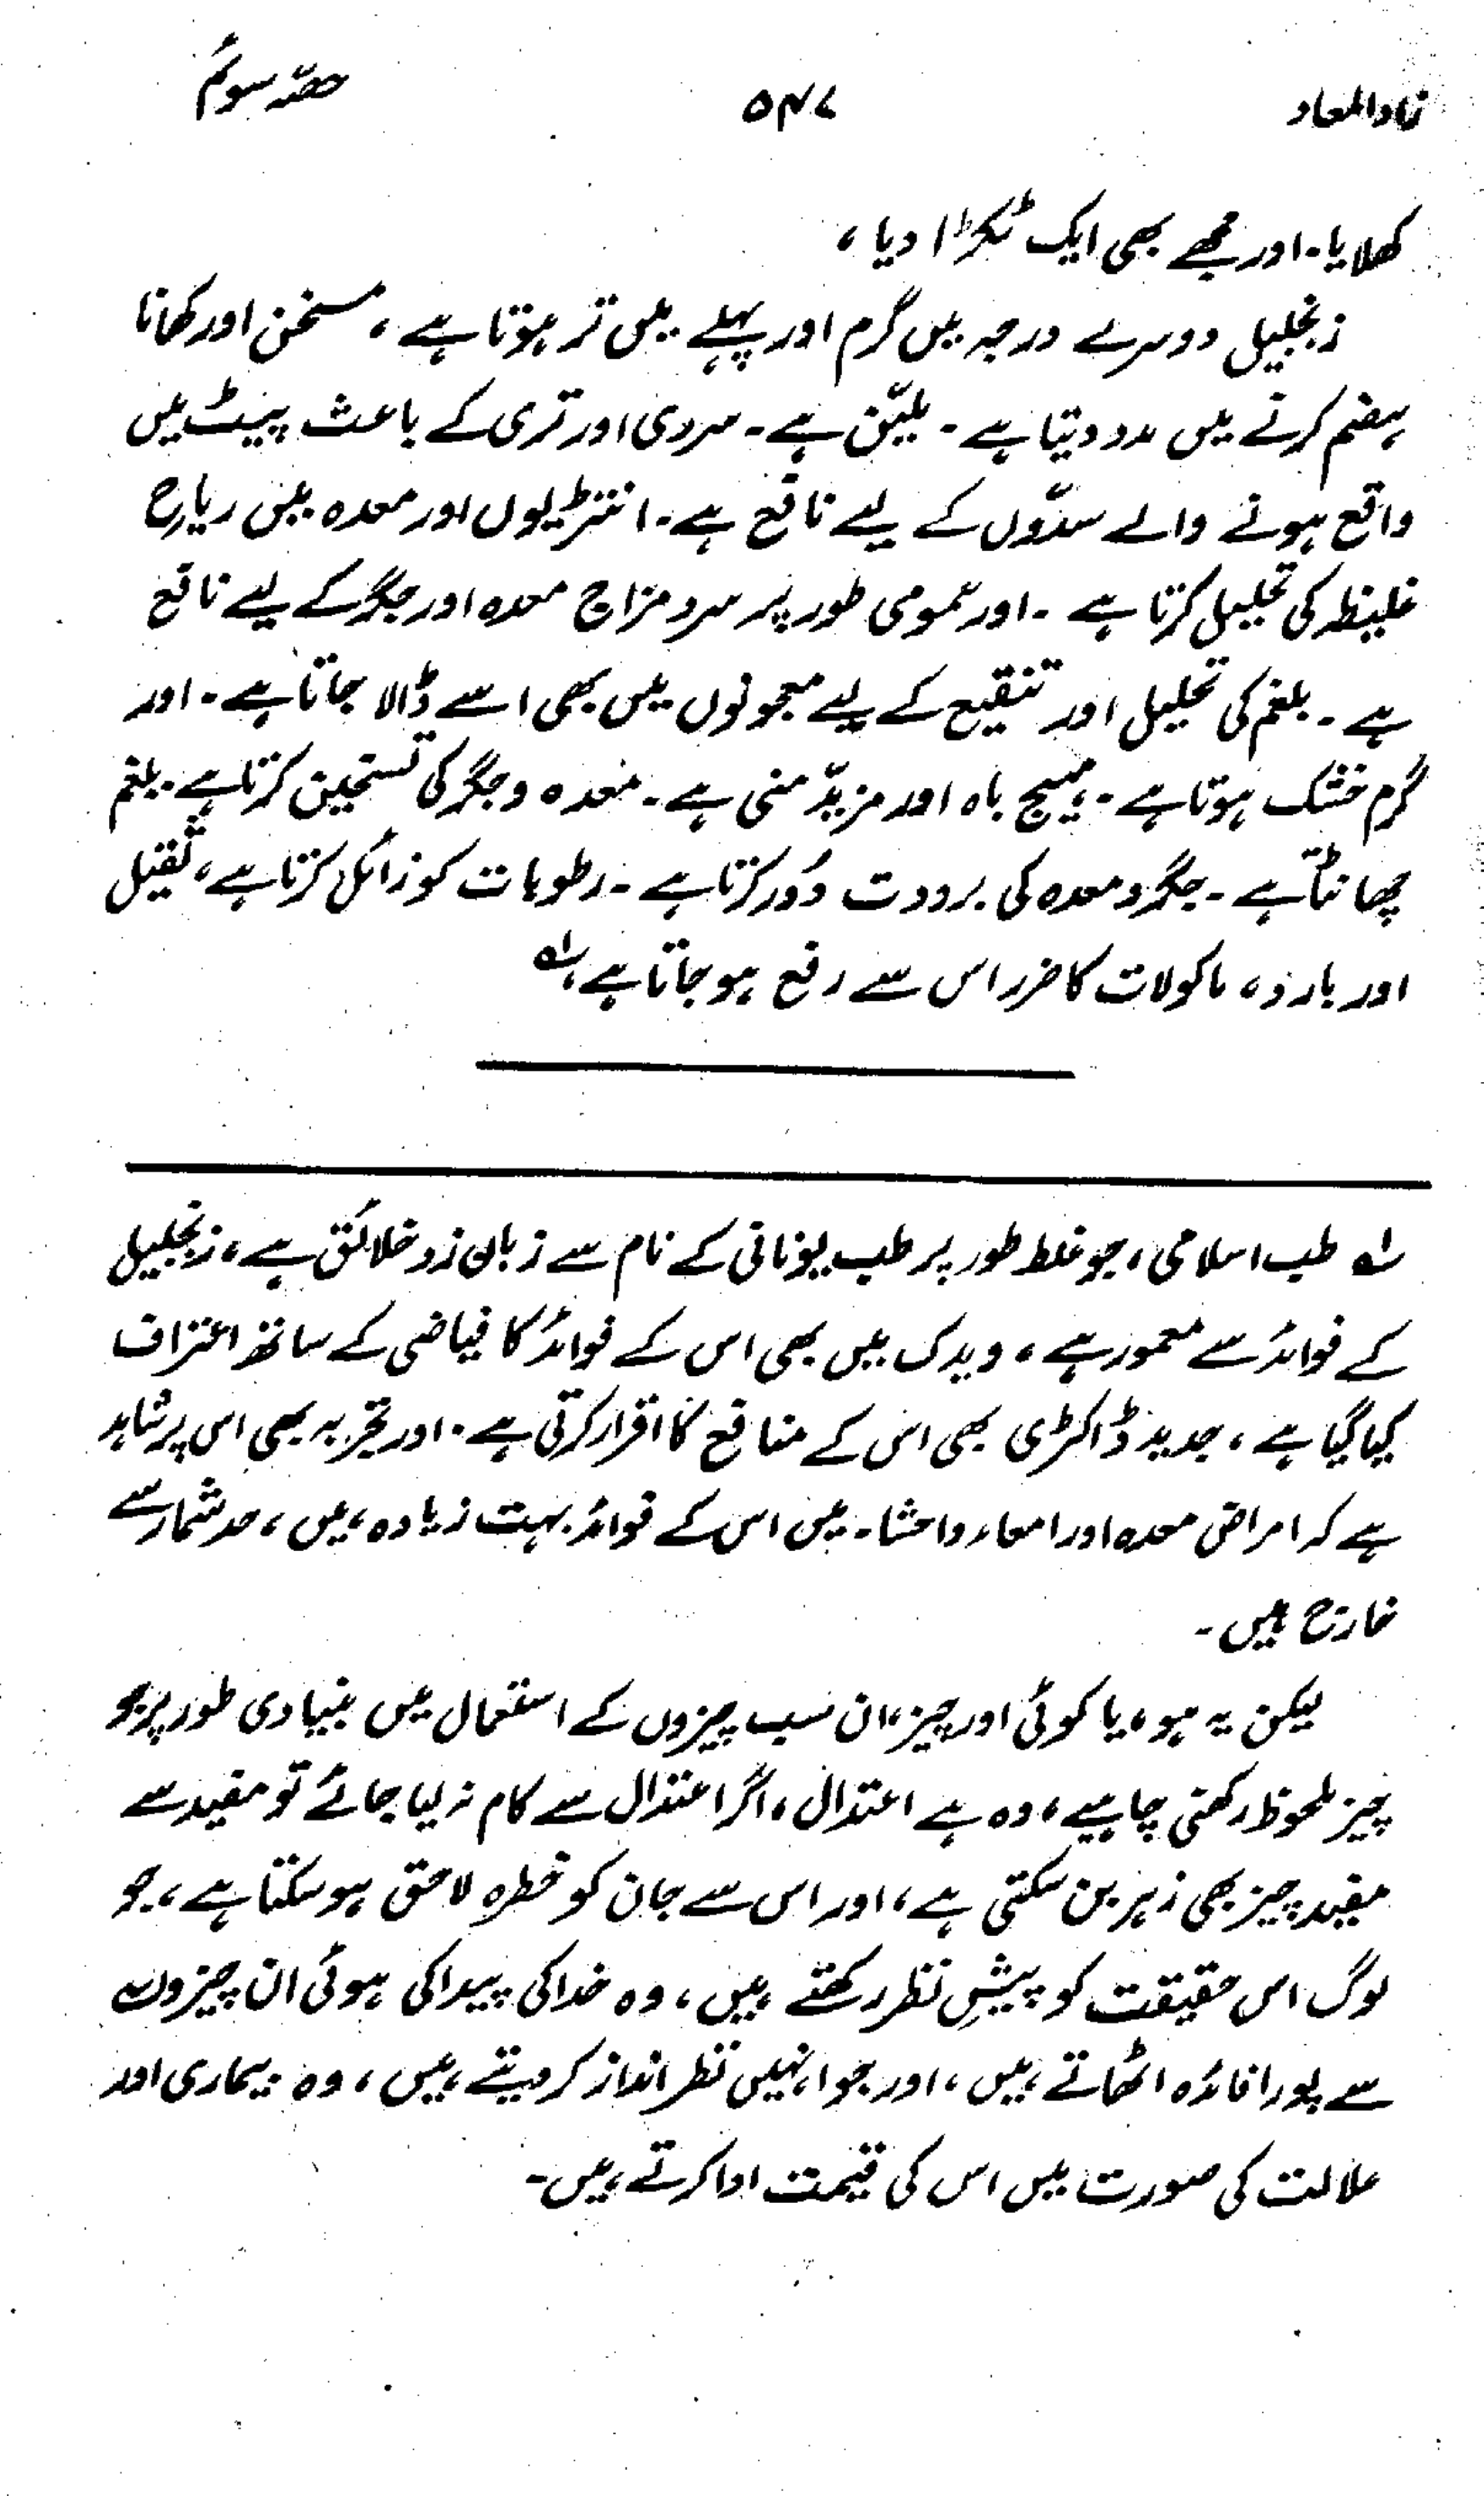 زاد المعاد ۵۴۷ حصّہ سوئم
کھلایا۔ اور مجھے بھی ایک ٹکڑا دیا،
زنجبیل دوسرے درجہ میں گرم اور پہلے میں تر ہوتا ہے، مسخن اور کھانا
ہضم کرنے میں مدد دیتا ہے۔ ملیّن ہے۔ سردی اور تری کے باعث پیٹ میں
واقع ہونے والے سدّوں کے لیے نافع ہے۔ انتڑیوں اور معدہ میں ریاح
غلیظ کی تحلیل کرتا ہے۔ اور عمومی طور پر سرد مزاج معدہ اور جگر کے لیے نافع
ہے۔ بلغم کی تحلیل اور تنقیع کے لیے معجونوں میں بھی اسے ڈالا جاتا ہے۔ اور
گرم خشک ہوتا ہے۔ مہیج باہ اور مزیدِّ منی ہے۔ معدہ و جگر کی تسخین کرتا ہے۔ بلغم
چھانٹتا ہے۔ جگر و معدہ کی برودت دُور کرتا ہے۔ رطوبات کو زائل کرتا ہے، ثقیل
اور بارد، ماکولات کا ضرر اس سے رفع ہو جاتا ہے، لہ
لہ طب اسلامی، جو غلط طور پر طب یونانی کے نام سے زبان زد خلائق ہے، زنجبیل
کے فوائد سے معمور ہے، ویدک میں بھی اس کے فوائد کا فیاضی کے ساتھ اعتراف
کیا گیا ہے، جدید ڈاکٹری بھی اس کے منافع کا اقرار کرتی ہے۔ اور تجربہ بھی اس پر شاہد
ہے کہ امراض معدہ اور امعاء و احشاء میں اس کے فوائد بہت زیادہ ہیں، حد شمار سے
خارج ہیں۔
لیکن یہ ہو، یا کوئی اور چیز، ان سب چیزوں کے استعمال میں بنیادی طور پر جو
چیز ملحوظ رکھنی چاہیے، وہ ہے اعتدال، اگر اعتدال سے کام نہ لیا جائے تو مفید سے
مفید چیز بھی زہر بن سکتی ہے، اور اس سے جان کو خطرہ لاحق ہو سکتا ہے، جو
لوگ اس حقیقت کو پیشِ نظر رکھتے ہیں، وہ خدا کی پیدا کی ہوئی ان چیزوں
سے پورا فائدہ اٹھاتے ہیں، اور جو انہیں نظر انداز کر دیتے ہیں، وہ بیماری اور
علالت کی صورت میں اس کی قیمت ادا کرتے ہیں۔